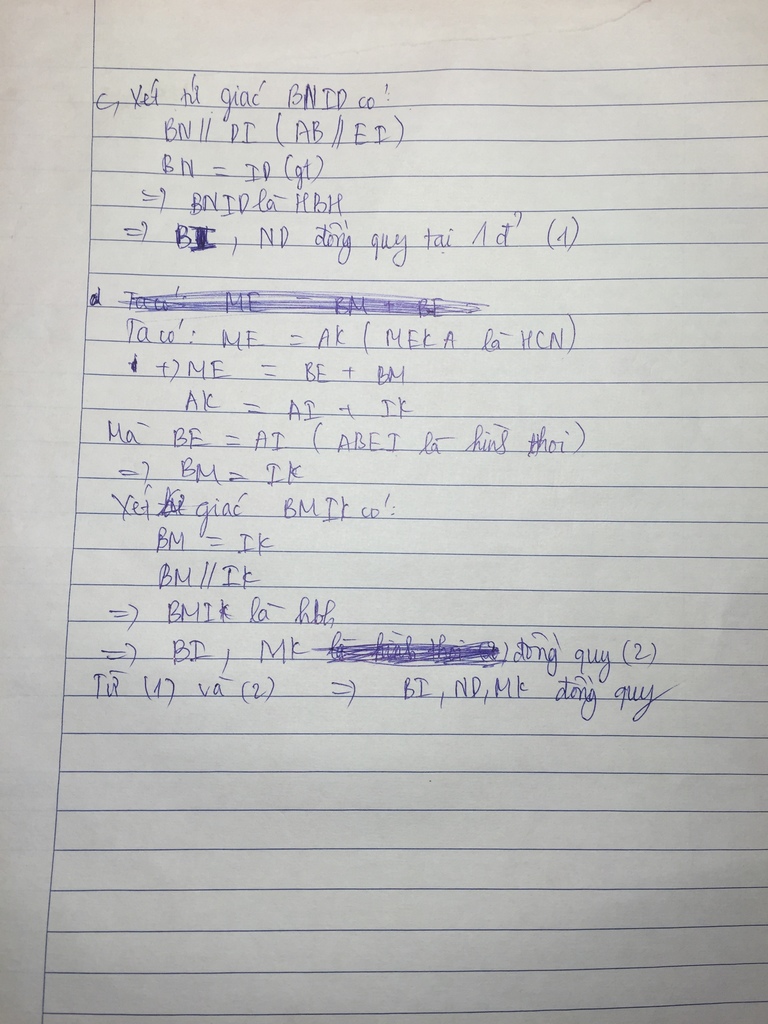 c, Xét tứ giác BNID có:
BN // DI ( AB // EI )
BN = ID (gt)
=> BNID là HBH
=> BI , ND đồng quy tại 1 đ' (1)
d Ta có: ME = BM + BE
Ta có: ME = AK ( MEKA là HCN )
+) ME = BE + BM
AK = AI + IK
Mà BE = AI ( ABEI là hình thoi )
=> BM = IK
Xét tứ giác BMIK có:
BM = IK
BM // IK
=> BMIK là hbh
=> BI , MK đồng quy (2)
Từ (1) và (2) => BI, ND, MK đồng quy